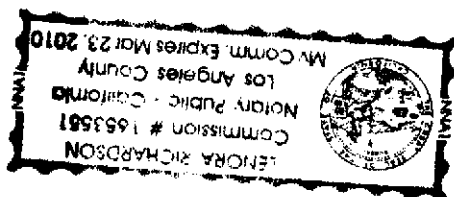 LENORA RICHARDSON
Commission # 1653551
Notary Public - California
Los Angeles County
My Comm. Expires Mar 23, 2010